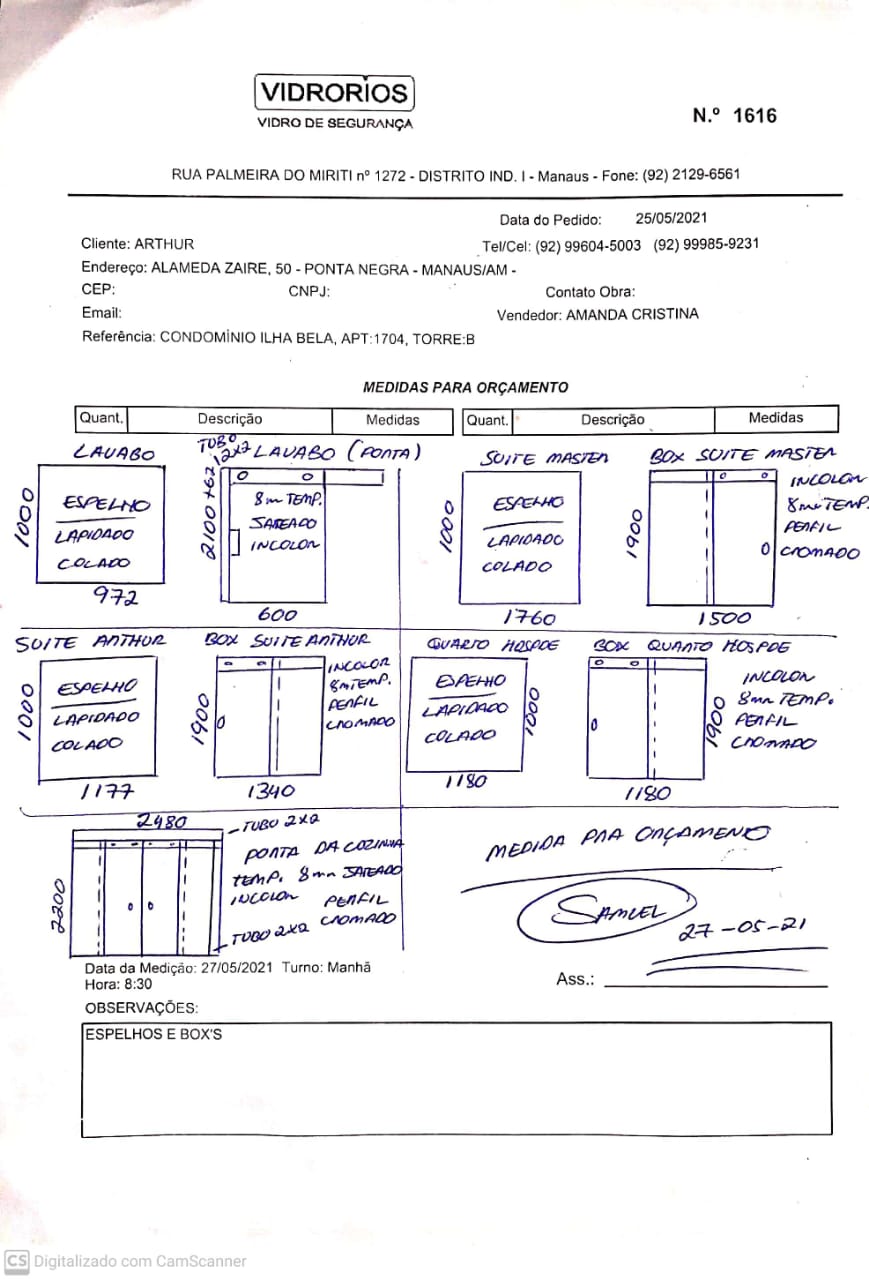 VIDRORIOS
VIDRO DE SEGURANÇA
N.º 1616
RUA PALMEIRA DO MIRITI nº 1272 - DISTRITO IND. I - Manaus - Fone: (92) 2129-6561
Data do Pedido: 25/05/2021
Cliente: ARTHUR
Tel/Cel: (92) 99604-5003 (92) 99985-9231
Endereço: ALAMEDA ZAIRE, 50 - PONTA NEGRA - MANAUS/AM -
CEP: CNPJ: Contato Obra:
Email: Vendedor: AMANDA CRISTINA
Referência: CONDOMÍNIO ILHA BELA, APT:1704, TORRE:B
MEDIDAS PARA ORÇAMENTO
Quant. Descrição Medidas Quant. Descrição Medidas
LAVABO
1000
ESPELHO
LAPIDADO
COLADO
972
TUBO
2x2 LAVABO (PORTA)
2100+62
8m TEMP.
SATEADO
INCOLOR
600
SUITE MASTER
1000
ESPELHO
LAPIDADO
COLADO
1760
BOX SUITE MASTER
1900
INCOLOR
8mm TEMP.
PERFIL
CROMADO
1500
SUITE ARTHUR
1000
ESPELHO
LAPIDADO
COLADO
1177
BOX SUITE ARTHUR
1900
INCOLOR
8m TEMP.
PERFIL
CROMADO
1340
QUARTO HOSPDE
ESPELHO
LAPIDADO
COLADO
1000
1180
BOX QUARTO HOSPDE
1900
INCOLOR
8mm TEMP.
PERFIL
CROMADO
1180
2480
2200
TUBO 2x2
PORTA DA COZINHA
TEMP. 8mm SATEADO
INCOLOR PERFIL
CROMADO
TUBO 2x2
MEDIDA PRA ORÇAMENTO
SAMUEL
27-05-21
Data da Medição: 27/05/2021 Turno: Manhã
Hora: 8:30
Ass.:
OBSERVAÇÕES:
ESPELHOS E BOX'S
CS Digitalizado com CamScanner